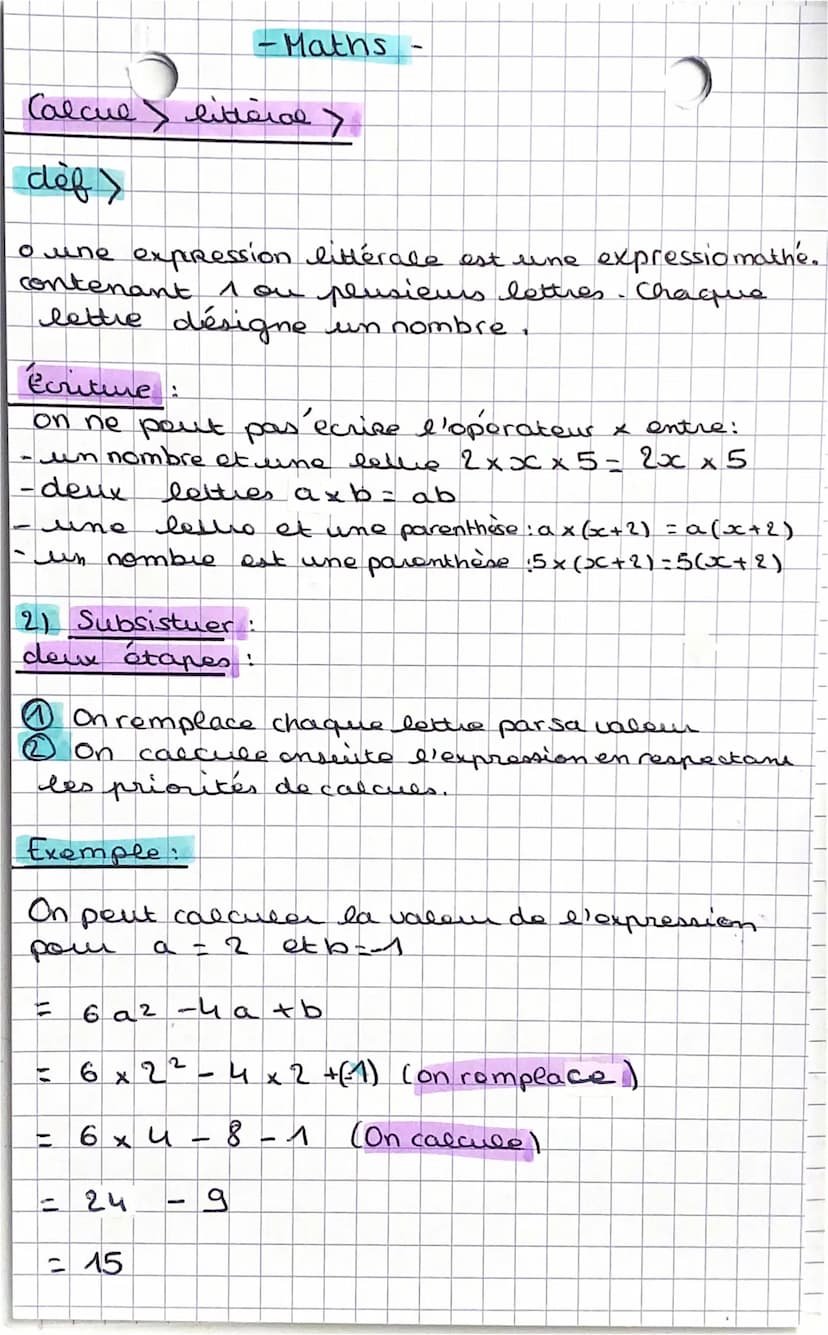 - Maths -
Calcul > littèral >
dèf >
o une expression littérale est une expressio mathé.
contenant 1 ou plusieurs lettres. Chaque
lettre désigne un nombre.
Écriture :
on ne peut pas écrire l'opérateur × entre:
- un nombre et une lettre 2 × x × 5 = 2x × 5
- deux lettres a × b = ab
- une lettre et une parenthèse : a × (x+2) = a(x+2)
- un nombre est une parenthèse : 5 × (x+2) = 5(x+2)
2) Subsistuer :
deux étapes :
① On remplace chaque lettre par sa valeur
② On calcule ensuite l'expression en respectant
les priorités de calcules.
Exemple :
On peut calculer la valeur de l'expression
pour a = 2 et b = -1
= 6a2 - 4a + b
= 6 × 2² - 4 × 2 + (-1) (on remplace)
= 6 × 4 - 8 - 1 (On calcule)
= 24 - 9
= 15